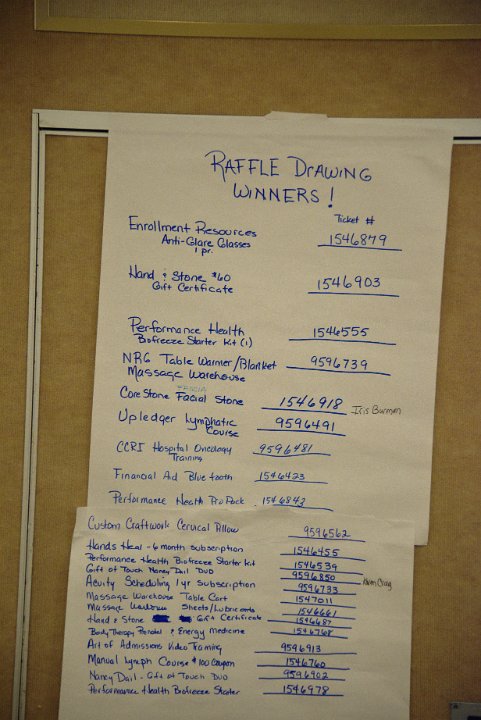 RAFFLE DRAWING
WINNERS!
Ticket #
Enrollment Resources
Anti-Glare Glasses
1 pr.
1546879
Hand & Stone $60
Gift Certificate
1546903
Performance Health
Biofreeze Starter Kit (1)
1546555
NRG Table Warmer/Blanket
Massage Warehouse
9596739
CoreStone Facial Stone 1546918
Upledger Lymphatic
Course
9596491
CCRI Hospital Oncology
Training
9596481
Financial Aid Bluetooth 1546423
Performance Health Pro Pack 1546843
Custom Craftwork Cervical Pillow 9596562
Hands Heal - 6 month subscription 1546455
Performance Health Biofreeze Starter Kit 1546539
Gift of Touch Nancy Dail DUO 9596850
Acuity Scheduling 1yr Subscription 9596733
Massage Warehouse Table Cart 1547011
Massage Sheets/Lubricants 1546661
Hand & Stone Gift Certificate 1546687
Body Therapy & Energy Medicine 1546768
Art of Admissions Video Training 9596913
Manual Lymph Course $100 Coupon 1546760
Nancy Dail - Gift of Touch Duo 9596902
Performance Health Biofreeze Starter 1546978